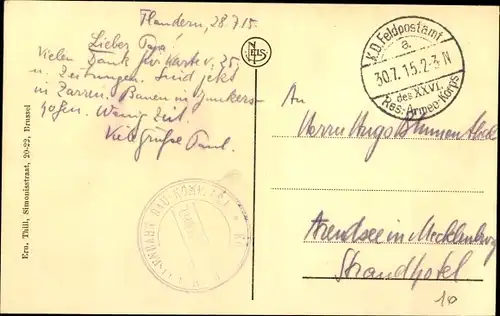 Flandern, 28.7.15.
Lieber Papa!
Vielen Dank für Karte v. 25.
u. Zeitungen. Sind jetzt
in Zarren. Bauen in Junkers-
hofen. Wenig Zeit.
Viele Grüße Paul.
NELS
K.D. Feldpostamt
a
30.7.15.2-3 N
des XXVI.
Res.-Armee-Korps
An
Herrn Hugo Blumenthal
Arendsee in Mecklenburg
Strandhotel
10
Ern. Thill, Simonisstraat, 20-22, Brussel